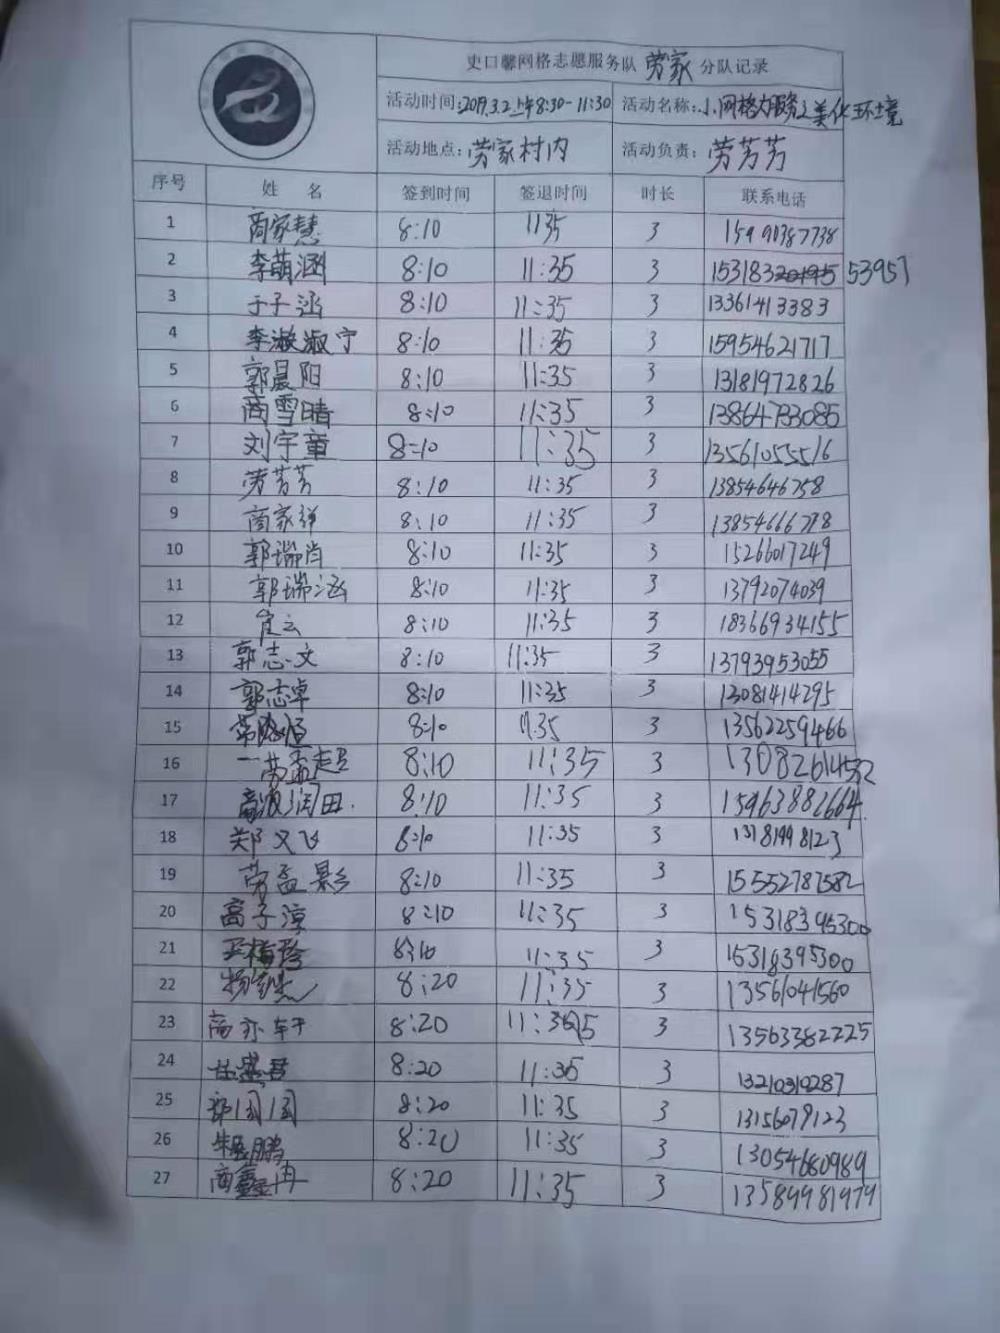 史口馨网格志愿服务队 劳家 分队记录
活动时间:2019.3.2上午8:30-11:30 活动名称:小网格大服务之美化环境
活动地点:劳家村内 活动负责:劳芳芳
序号 姓 名 签到时间 签退时间 时长 联系电话
1 商家慧 8:10 1135 3 15990387738
2 李萌涵 8:10 11:35 3 153183 53957
3 于子涵 8:10 11:35 3 13361413383
4 李淑宁 8:10 11:35 3 15954621717
5 郭晨阳 8:10 11:35 3 13181972826
6 商雪晴 8:10 11:35 3 13864733085
7 刘宇童 8:10 11:35 3 13561055516
8 劳芳芳 8:10 11:35 3 13854646758
9 商家祥 8:10 11:35 3 13854666778
10 郭瑞肖 8:10 11:35 3 15266017249
11 郭瑞涵 8:10 11:35 3 13792074039
12 崔云 8:10 11:35 3 18366934155
13 郭志文 8:10 11:35 3 13793953055
14 郭志卓 8:10 11:35 3 13081414295
15 8:10 11:35 3 13562259466
16 劳孟超 8:10 11:35 3
17 润田 8:10 11:35 3 15963882664
18 郑义飞 8:10 11:35 3 13181998123
19 劳孟影 8:10 11:35 3 15552787582
20 高子淳 8:10 11:35 3 15318395300
21 8:10 11:35 3 15318395300
22 8:20 11:35 3 13561041560
23 高亦轩 8:20 3 13563382225
24 8:20 11:35 3 13210319287
25 8:20 11:35 3 13156079123
26 鹏 8:20 11:35 3 13054680989
27 商鑫冉 8:20 11:35 3 13589981979